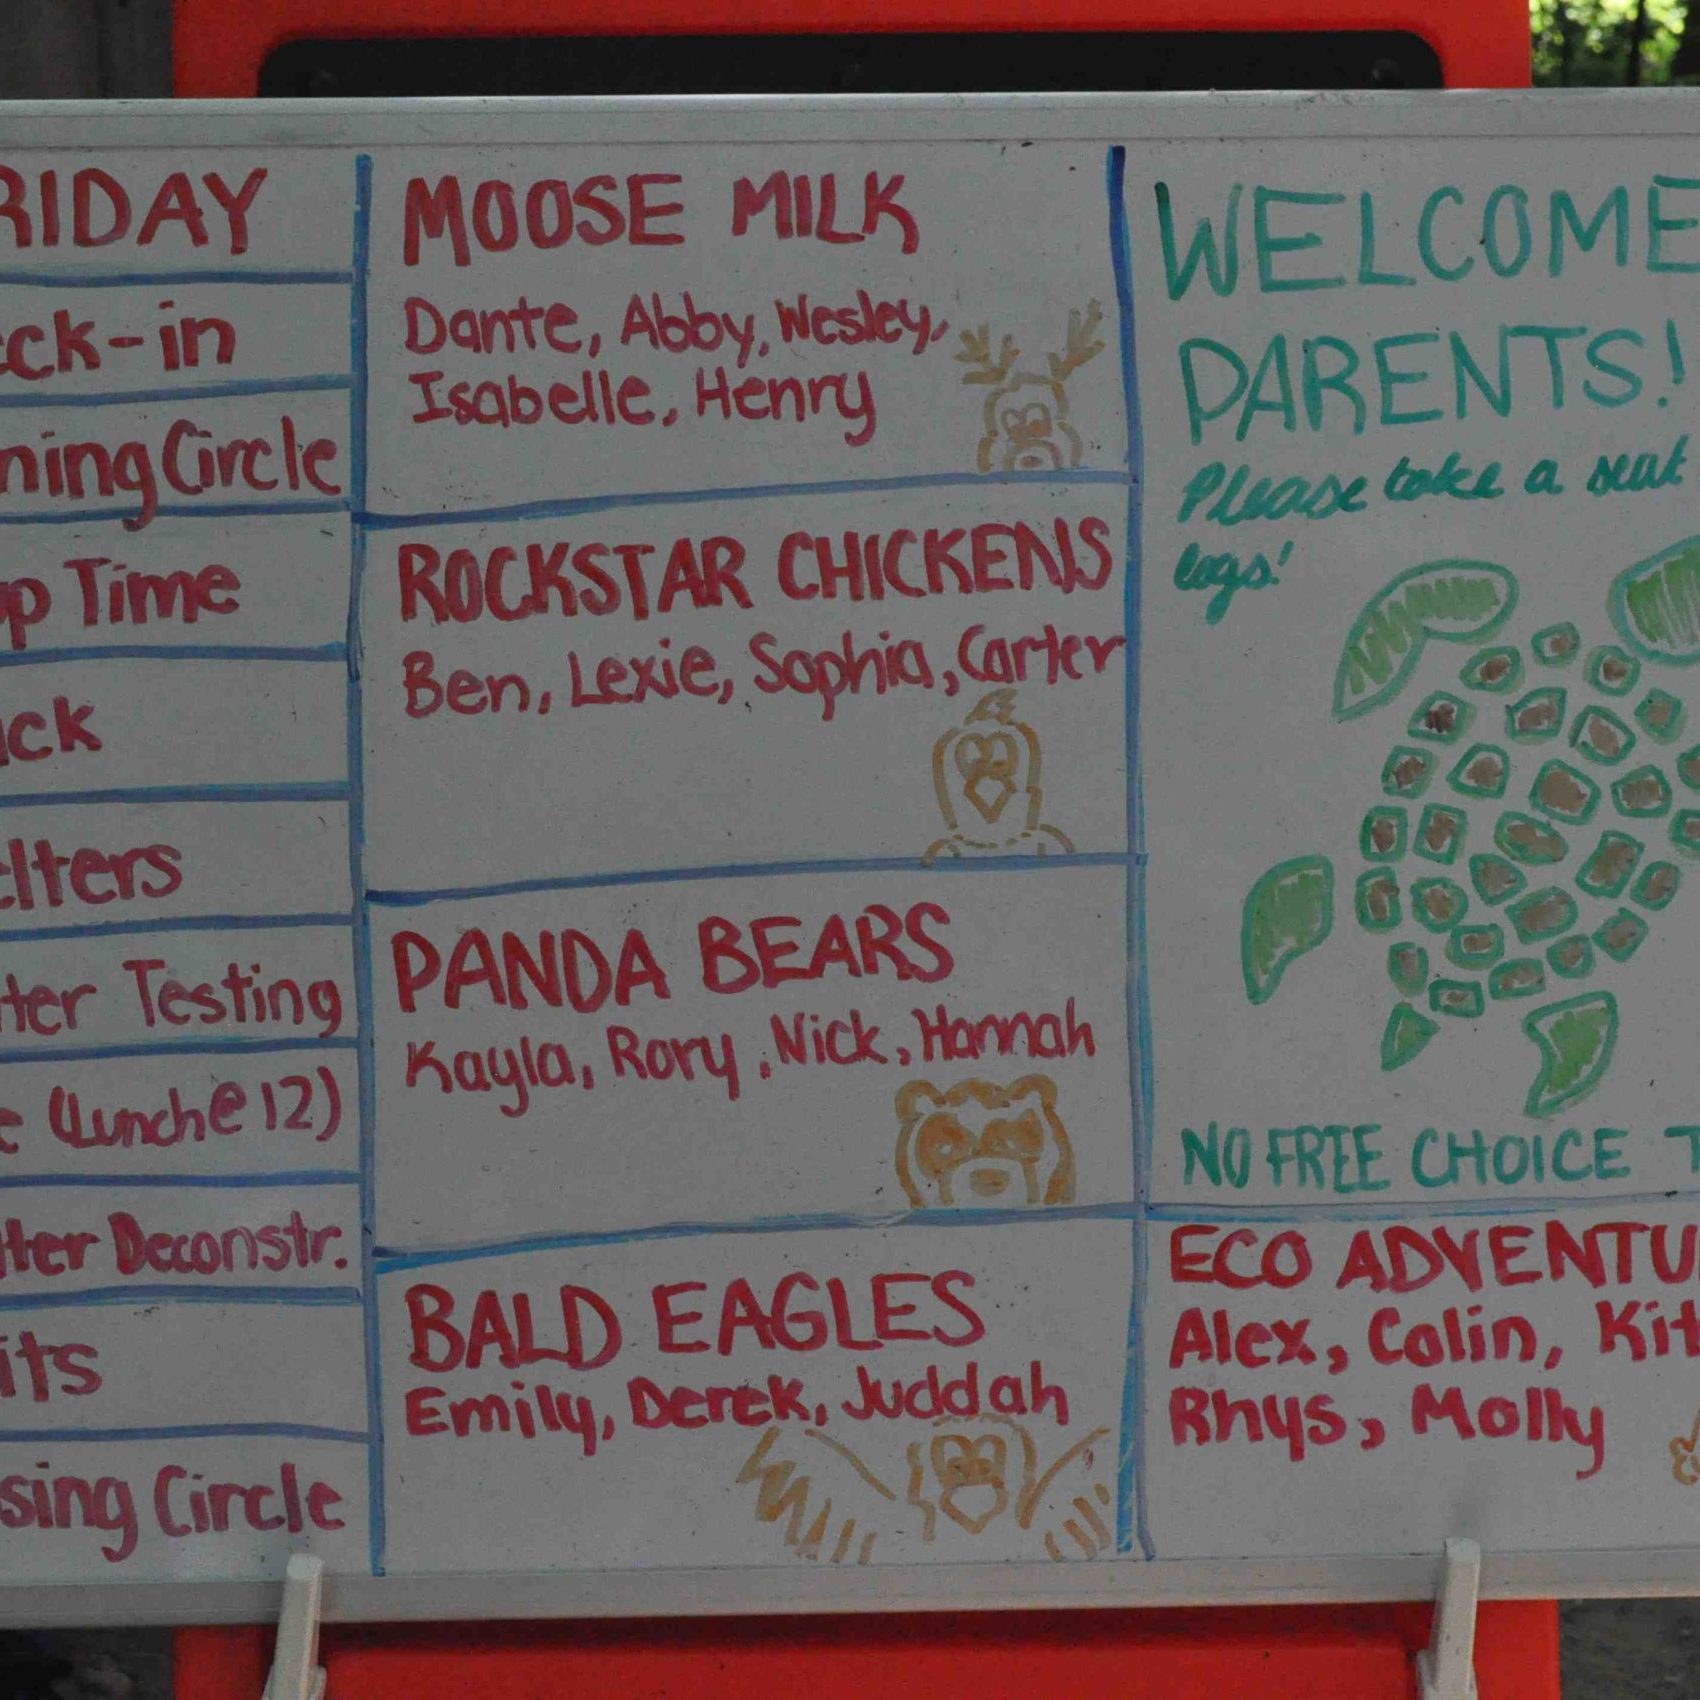 RIDAY
ck-in
ning Circle
p Time
ck
elters
ter Testing
e (Lunch@12)
lter Deconstr.
its
sing Circle
MOOSE MILK
Dante, Abby, Wesley,
Isabelle, Henry
ROCKSTAR CHICKENS
Ben, Lexie, Sophia, Carter
PANDA BEARS
Kayla, Rory, Nick, Hannah
BALD EAGLES
Emily, Derek, Juddah
WELCOME
PARENTS!
Please take a seat
logs!
NO FREE CHOICE T
ECO ADVENTU
Alex, Colin, Kit
Rhys, Molly